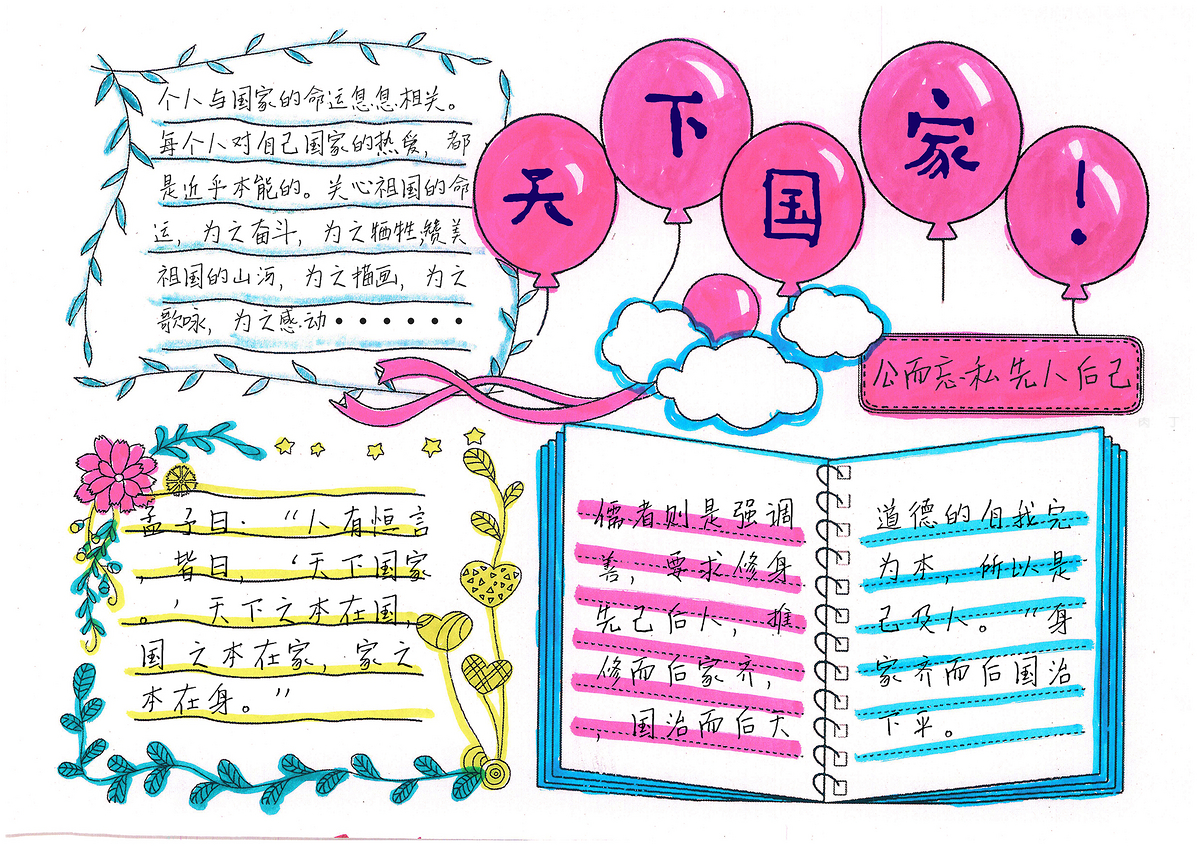 天下国家！
个人与国家的命运息息相关。
每个人对自己国家的热爱，都
是近乎本能的。关心祖国的命
运，为之奋斗，为之牺牲,赞美
祖国的山河，为之描画，为之
歌咏，为之感动······
公而忘私先人后己
孟子曰：“人有恒言
，皆曰，‘天下国家
。’天下之本在国，
国之本在家，家之
本在身。”
儒者则是强调 道德的自我完
善，要求修身 为本，所以是
先己后人，推 己及人。“身
修而后家齐， 家齐而后国治
，国治而后天 下平。